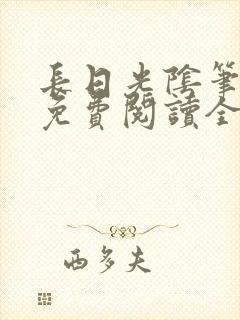 長日光陰筆
免費閱讀全
西多夫